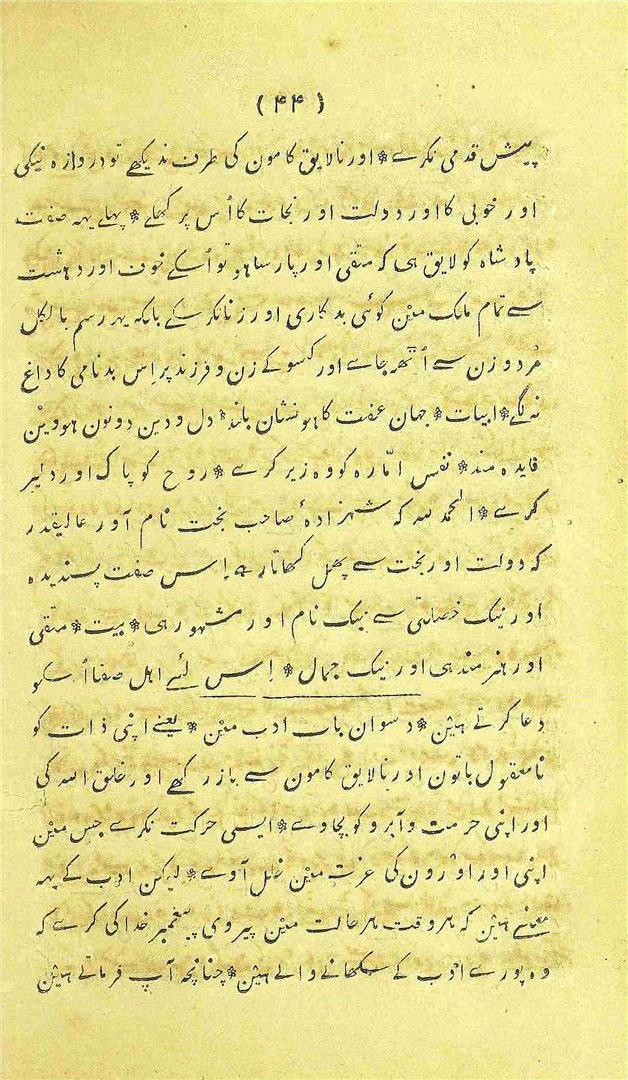 ( ۴۴ )
پیش قدمی نکرے * اور نالایق کامون کی طرف ندیکھے تو دروازہ نیکی
اور خوبی کا اور دولت اور نجات کا اُس پر کھلے * پہلے یہہ صفت
پادشاہ کو لایق ہی کہ متقی اور پارسا ہو تو اُسکے خوف اور دہشت
سے تمام ملک مین کوئی بدکاری اور زنا نکر سکے بلکہ یہہ رسم بالکل
مرد و زن سے اُٹھہ جاے اور کسو کے زن و فرزند پر اِس بدنامی کا داغ
نہ لگے * ابیات * جہان عفت کا ہو نشان بلند * دل و دین دونون ہووین
فایدہ مند * نفس امّارہ کو وہ زیر کرے * روح کو پاک اور دلیر
کرے * الحمد للہ کہ شہزادۂ صاحب بخت نام آور عالیقدر
کہ دولت اور بخت سے پھل کھاتا رہے اِس صفت پسندیدہ
اور نیک خصلتی سے نیک نام اور مشہور ہی * بیت * متقی
اور ہنرمند ہی اور نیک جمال * اِس لئے اہل صفا اُسکو
دعا کرتے ہین * دسوان باب ادب مین * یعنے اپنی ذات کو
نامعقول باتون اور نالایق کامون سے باز رکھے اور خلق اللہ کی
اور اپنی حرمت و آبرو کو بچاوے * ایسی حرکت نکرے جس مین
اپنی اور اورون کی عزت مین خلل آوے * لیکن ادب کے یہہ
معنے ہین کہ ہر وقت ہر حالت مین پیروی پیغمبر خدا کی کرے کہ
وہ پورے ادب کے سکھانے والے ہین * چنانچہ آپ فرماتے ہین